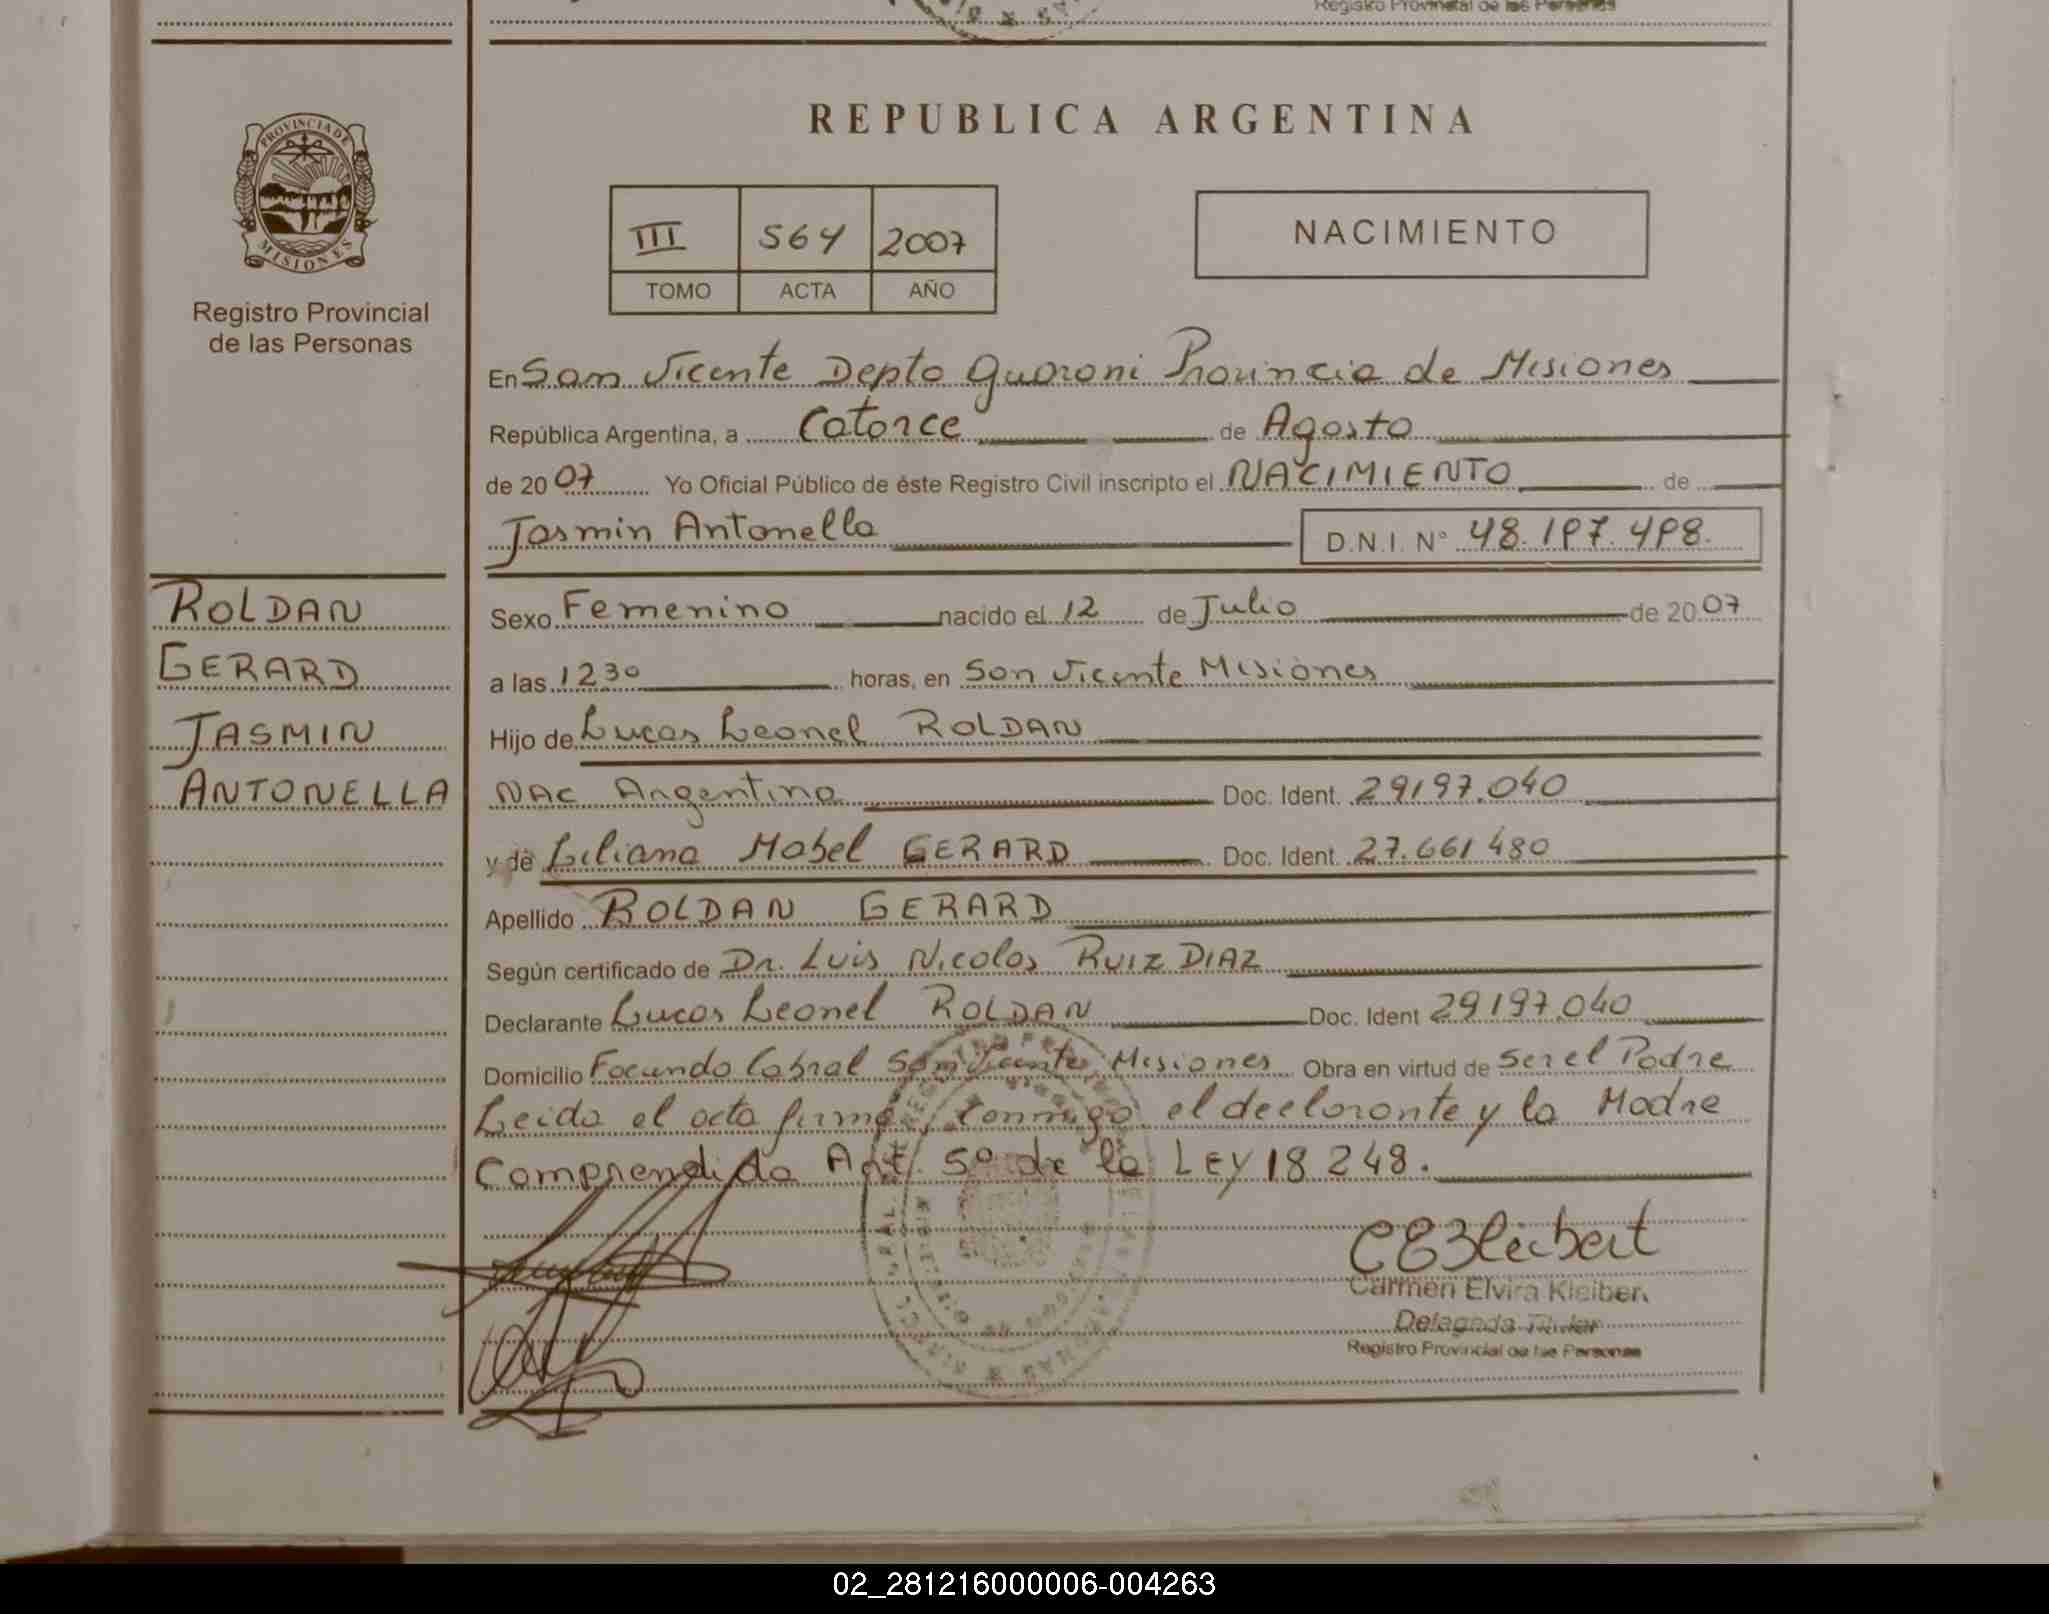 Registro Provincial de las Personas
REPUBLICA ARGENTINA
PROVINCIA DE
MISIONES
Registro Provincial
de las Personas
III 564 2007
TOMO ACTA AÑO
NACIMIENTO
En San Vicente Depto Guarani Provincia de Misiones
República Argentina, a Catorce de Agosto
de 2007 Yo Oficial Público de éste Registro Civil inscripto el NACIMIENTO de
Jasmin Antonella D.N.I. N° 48.197.498.
ROLDAN
GERARD
JASMIN
ANTONELLA
Sexo Femenino nacido el 12 de Julio de 2007
a las 1230 horas, en San Vicente Misiones
Hijo de Lucas Leonel ROLDAN
NAC Argentina Doc. Ident. 29197.040
y de Liliana Mabel GERARD Doc. Ident. 27.661480
Apellido ROLDAN GERARD
Según certificado de Dr. Luis Nicolas RUIZ DIAZ
Declarante Lucas Leonel ROLDAN Doc. Ident 29197.040
Domicilio Facundo Cabral San Vicente Misiones Obra en virtud de Ser el Padre
Leida el acta firma, conmigo el declarante y la Madre
Comprendida Art. 5° de la LEY 18.248.
CEKleibert
Carmen Elvira Kleiber
Delegada Titular
Registro Provincial de las Personas
02_281216000006-004263